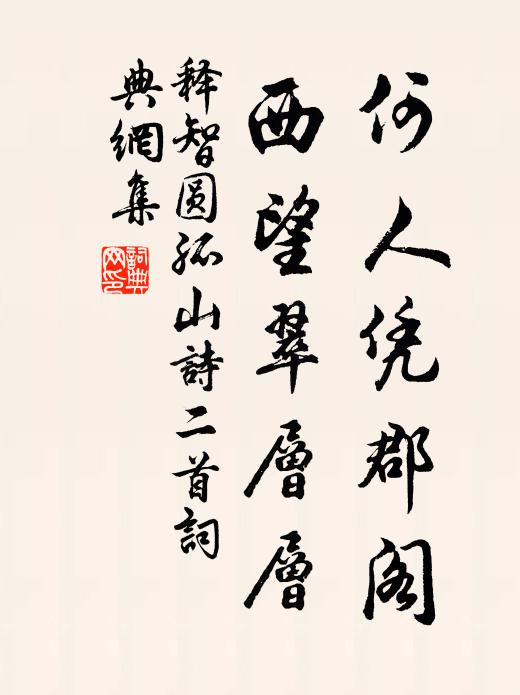 何人凭郡阁
西望翠層層
释智圆孤山詩二首詞
典網集
詞典网印